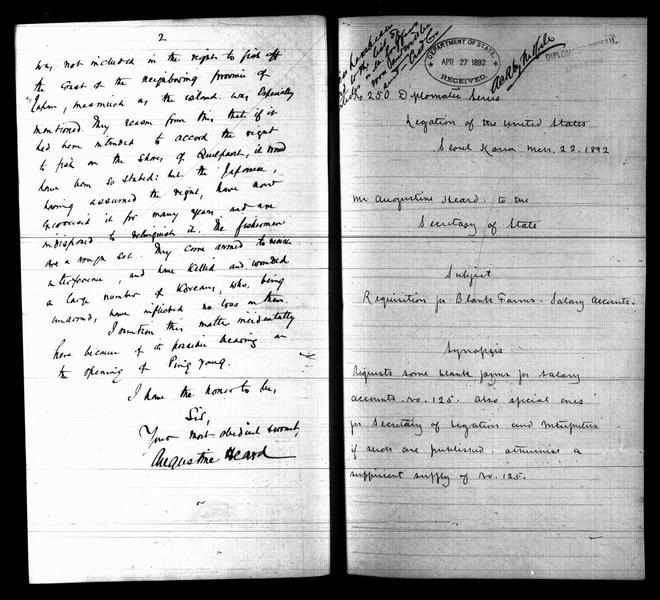 2
was not included in the right to fish off
the Coast of the neighboring province of
inasmuch as the island was Especially
mentioned. They reason from this that if it
had been intended to accord the right
to fish on the shores of Quelpaert, it would
have been so stated: but the Japanese,
having assumed the right, have now
exercised it for many years and are
indisposed to relinquish it. The fishermen
are a rough set. They come armed to resist
interference, and have killed and wounded
a large number of Koreans, who, being
unarmed, have inflicted no loss on them.
I mention this matter incidentally
here because of its possible bearing on
the opening of Ping Yang.
I have the honor to be,
Sir,
Your most obedient servant,
Augustine Heard
DEPARTMENT OF STATE,
APR 27 1892
RECEIVED.
DIPLOMATIC BUREAU
No 250 Diplomatic Series
Legation of the United States
Seoul Korea Mch. 22. 1892
Mr Augustine Heard to the
Secretary of State
Subject
Requisition for Blank Forms - Salary Accounts.
Synopsis
Requests some blank forms for salary
accounts. No. 125. Also special ones
for Secretary of Legation and Interpreters
if such are published. Otherwise a
sufficient supply of No. 125.